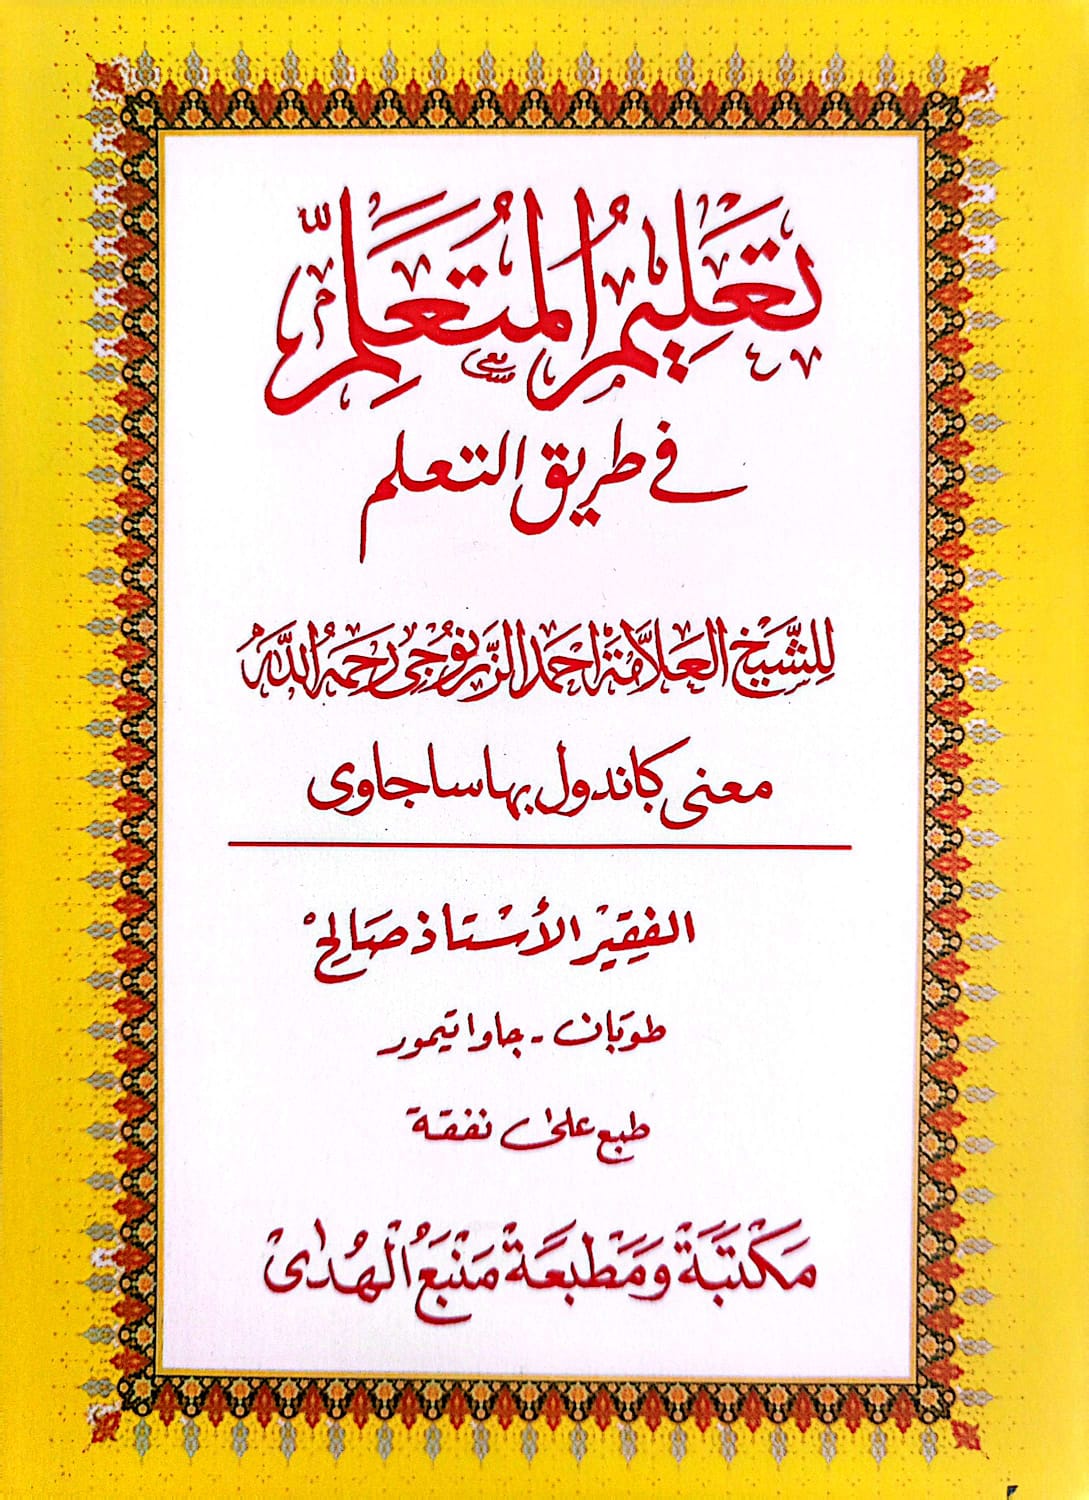 تَعْلِيمُ الْمُتَعَلِّمِ
في طريق التعلم
لِلشَّيْخِ الْعَلَّامَةْ اَحْمَدْ الزَّرْنُوْجِى رَحِمَهُ اللهُ
معنى كاندول بهاسا جاوى
الفقِيْر الأُسْتَاذ صَالِحْ
طوبَان - جاوا تيمور
طبع على نفقة
مَكْتَبَةْ وَمَطْبَعَةْ مَنْبَعُ الْهُدٰىْ